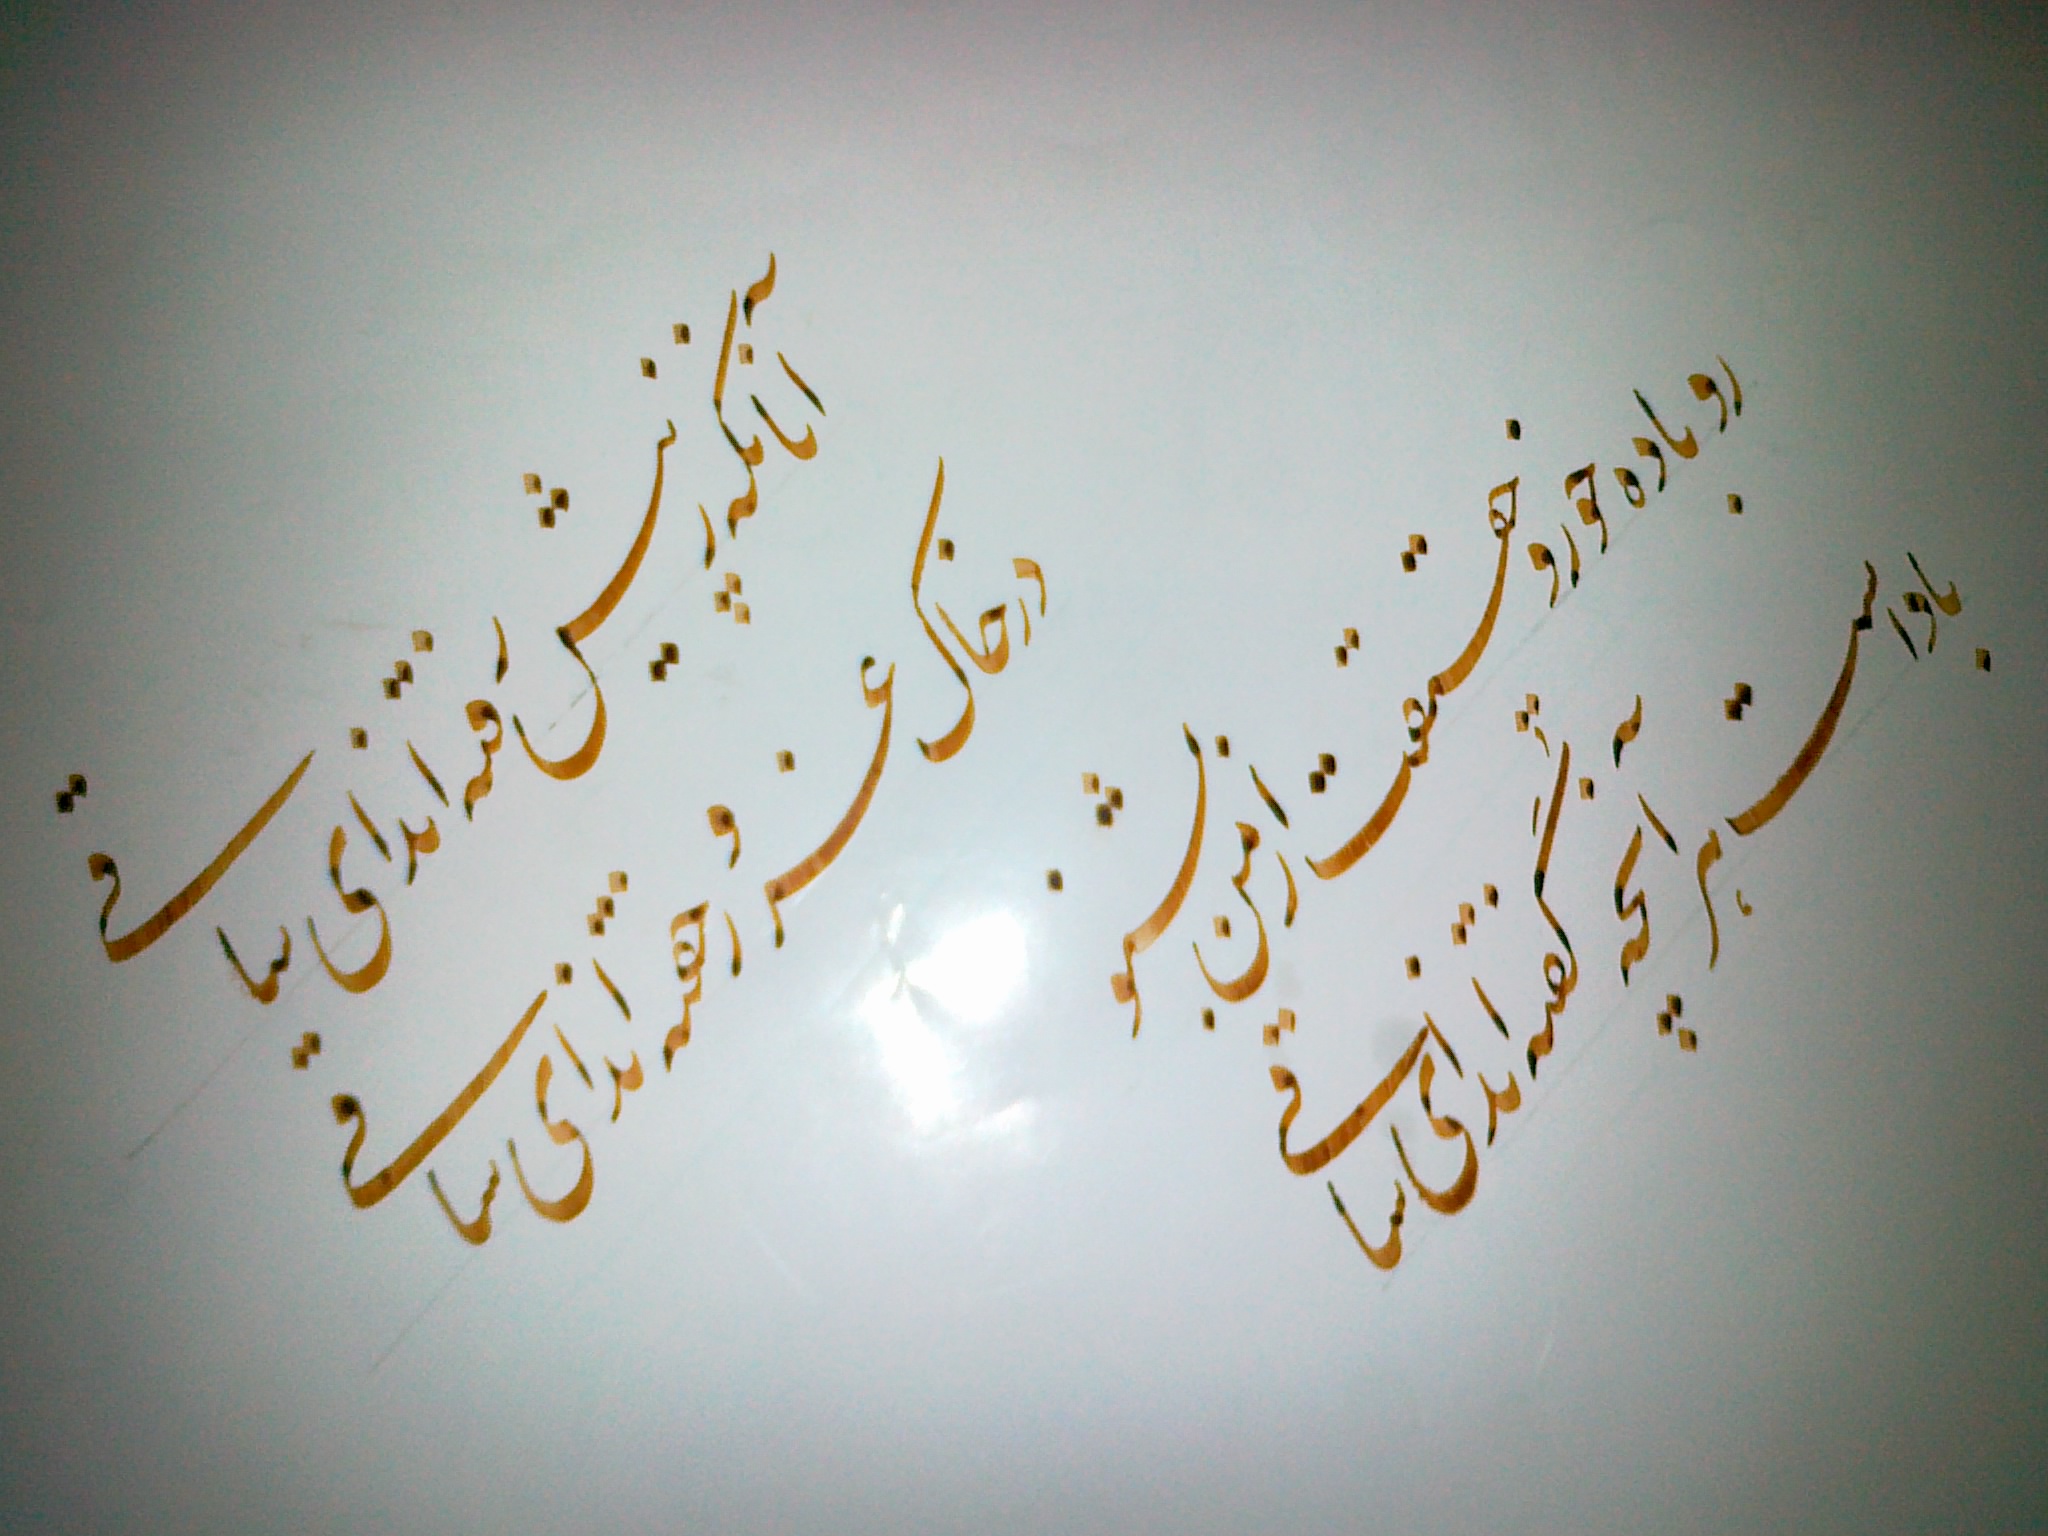 آنانکه ز پیش رفته‌اند ای ساقی
در خاک غرور خفته‌اند ای ساقی
رو باده خور و حقیقت از من بشنو
باد است هر آنچه گفته‌اند ای ساقی